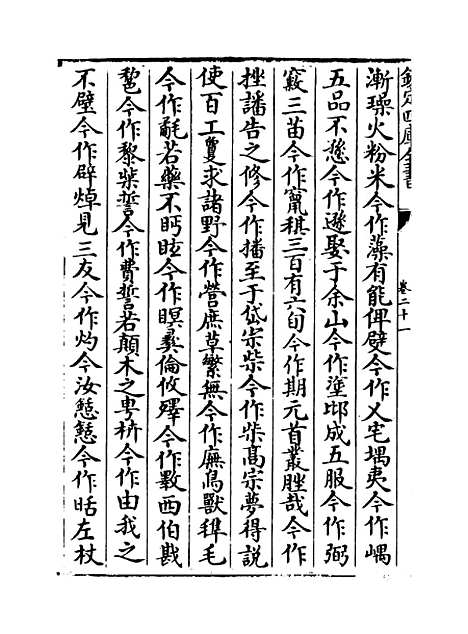 欽定四庫全書
卷二十一
漸璪火粉米今作藻有能俾嬖今作乂宅堣夷今作嵎
五品不愻今作遜娶于余山今作塗邶成五服今作弼
竅三苗今作竄稘三百有六旬今作期元首叢脞哉今作
挫譒告之修今作播至于岱宗祡今作柴髙宗夢得説
使百工敻求諸野今作營庶草繁無今作廡鳥獸𣬛毛
今作毻若藥不眄眩今作瞑彛倫攸殬今作斁西伯戡
𨛫今作黎粊誓今作費誓若顛木之㽕枿今作由我之
不壁今作辟焯見三友今作灼今汝憩憩今作聒左杖